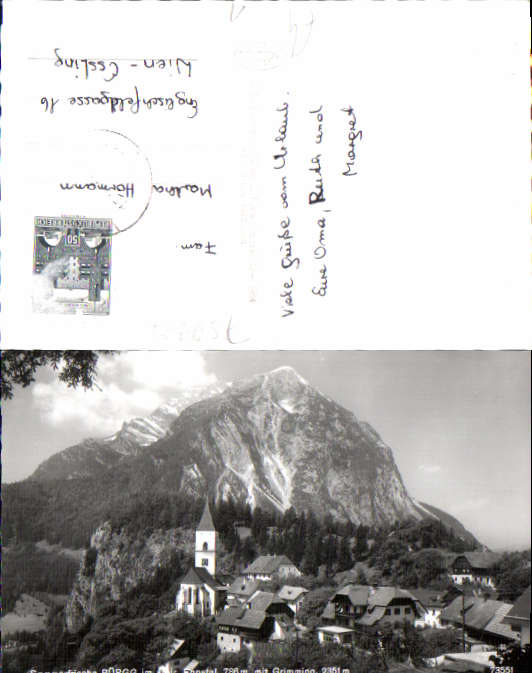 Viele Grüße vom Urlaub.
Eure Oma, Ruth und
Margret
Fam.
Hörmann
Englischfeldgasse 16
Wien - Essling
50
Sommerfrische PÜRGG im Ennstal, 786 m mit Grimming, 2351 m
73551